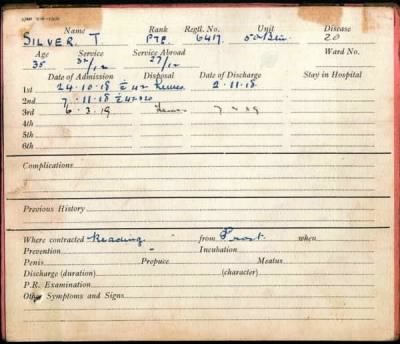 Name Rank Regtl. No. Unit Disease
SILVER. T Pte 6417. 50 Btn. 20
Age Service Service Abroad Ward No.
35 32/12 27/12
Date of Admission Disposal Date of Discharge Stay in Hospital
1st 24.10.18 2.11.18
2nd 7.11.18
3rd 6.3.19
4th
5th
6th
Complications
Previous History
Where contracted Reading from Prost. when
Prevention Incubation
Penis Prepuce Meatus
Discharge (duration) (character)
P.R. Examination
Other Symptoms and Signs